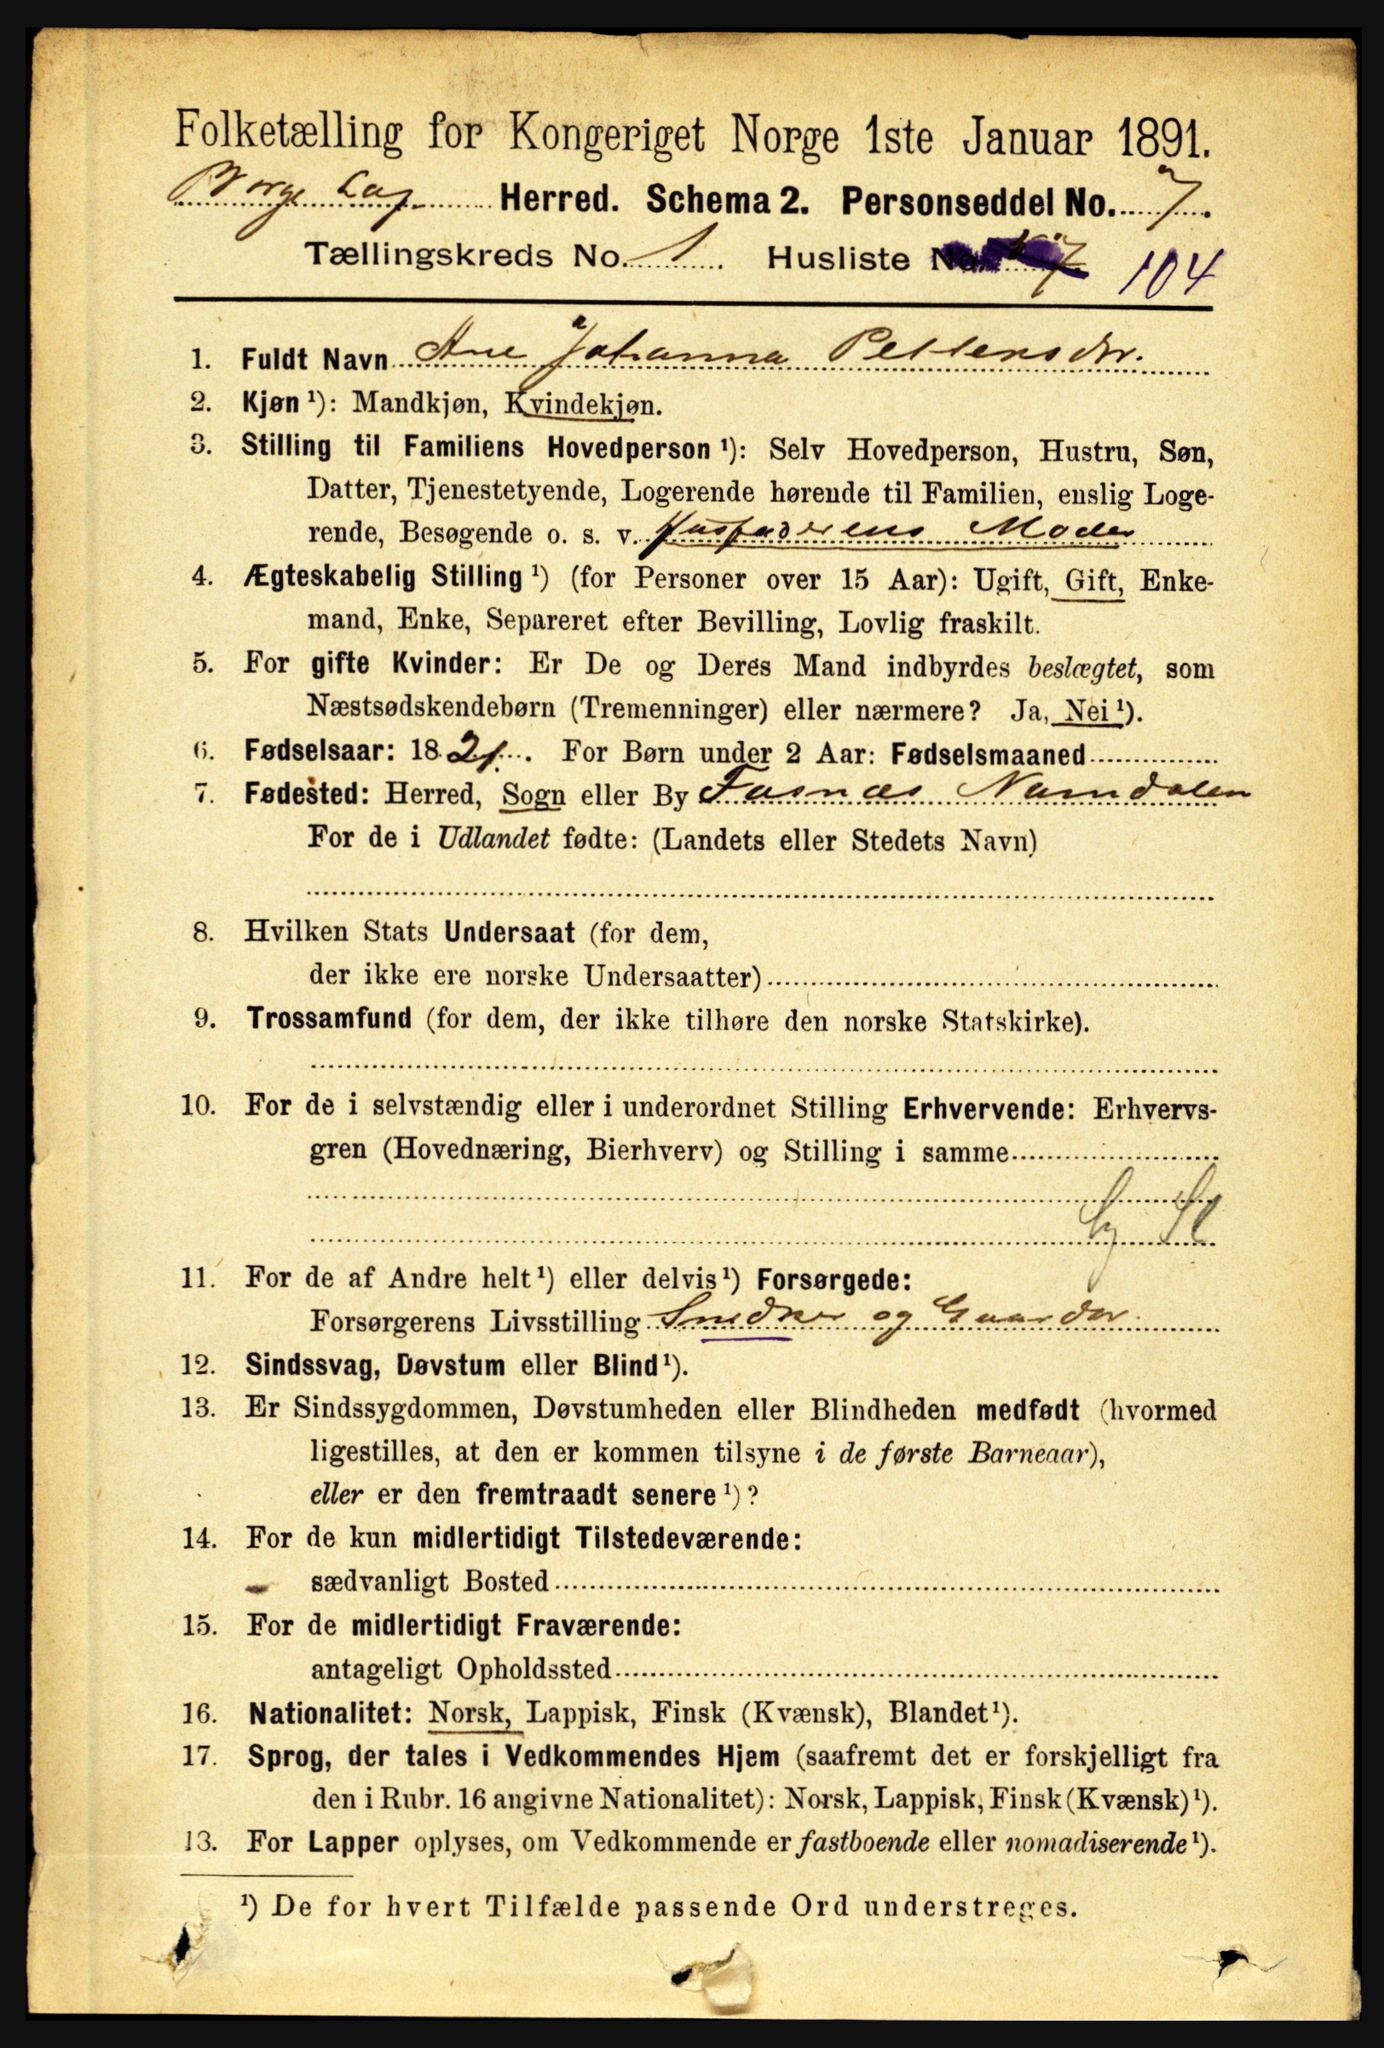 Folketælling for Kongeriget Norge 1ste Januar 1891.
Borge Herred. Schema 2. Personseddel No. 7.
Tællingskreds No. 1 Husliste No. 7 104
1. Fuldt Navn Ane Johanna Pettersdtr.
2. Kjøn ¹): Mandkjøn, Kvindekjøn.
3. Stilling til Familiens Hovedperson ¹): Selv Hovedperson, Hustru, Søn,
Datter, Tjenestetyende, Logerende hørende til Familien, enslig Loge-
rende, Besøgende o. s. v. Husfaderens Moder
4. Ægteskabelig Stilling ¹) (for Personer over 15 Aar): Ugift, Gift, Enke-
mand, Enke, Separeret efter Bevilling, Lovlig fraskilt.
5. For gifte Kvinder: Er De og Deres Mand indbyrdes beslægtet, som
Næstsødskendebørn (Tremenninger) eller nærmere? Ja, Nei ¹).
6. Fødselsaar: 1821. For Børn under 2 Aar: Fødselsmaaned
7. Fødested: Herred, Sogn eller By Fosnæs Namdalen
For de i Udlandet fødte: (Landets eller Stedets Navn)
8. Hvilken Stats Undersaat (for dem,
der ikke ere norske Undersaatter)
9. Trossamfund (for dem, der ikke tilhøre den norske Statskirke).
10. For de i selvstændig eller i underordnet Stilling Erhvervende: Erhvervs-
gren (Hovednæring, Bierhverv) og Stilling i samme
11. For de af Andre helt ¹) eller delvis ¹) Forsørgede:
Forsørgerens Livsstilling Snedker og Gaardbr.
12. Sindssvag, Døvstum eller Blind ¹).
13. Er Sindssygdommen, Døvstumheden eller Blindheden medfødt (hvormed
ligestilles, at den er kommen tilsyne i de første Barneaar),
eller er den fremtraadt senere ¹)?
14. For de kun midlertidigt Tilstedeværende:
sædvanligt Bosted
15. For de midlertidigt Fraværende:
antageligt Opholdssted
16. Nationalitet: Norsk, Lappisk, Finsk (Kvænsk), Blandet ¹).
17. Sprog, der tales i Vedkommendes Hjem (saafremt det er forskjelligt fra
den i Rubr. 16 angivne Nationalitet): Norsk, Lappisk, Finsk (Kvænsk) ¹).
13. For Lapper oplyses, om Vedkommende er fastboende eller nomadiserende ¹).
¹) De for hvert Tilfælde passende Ord understreges.